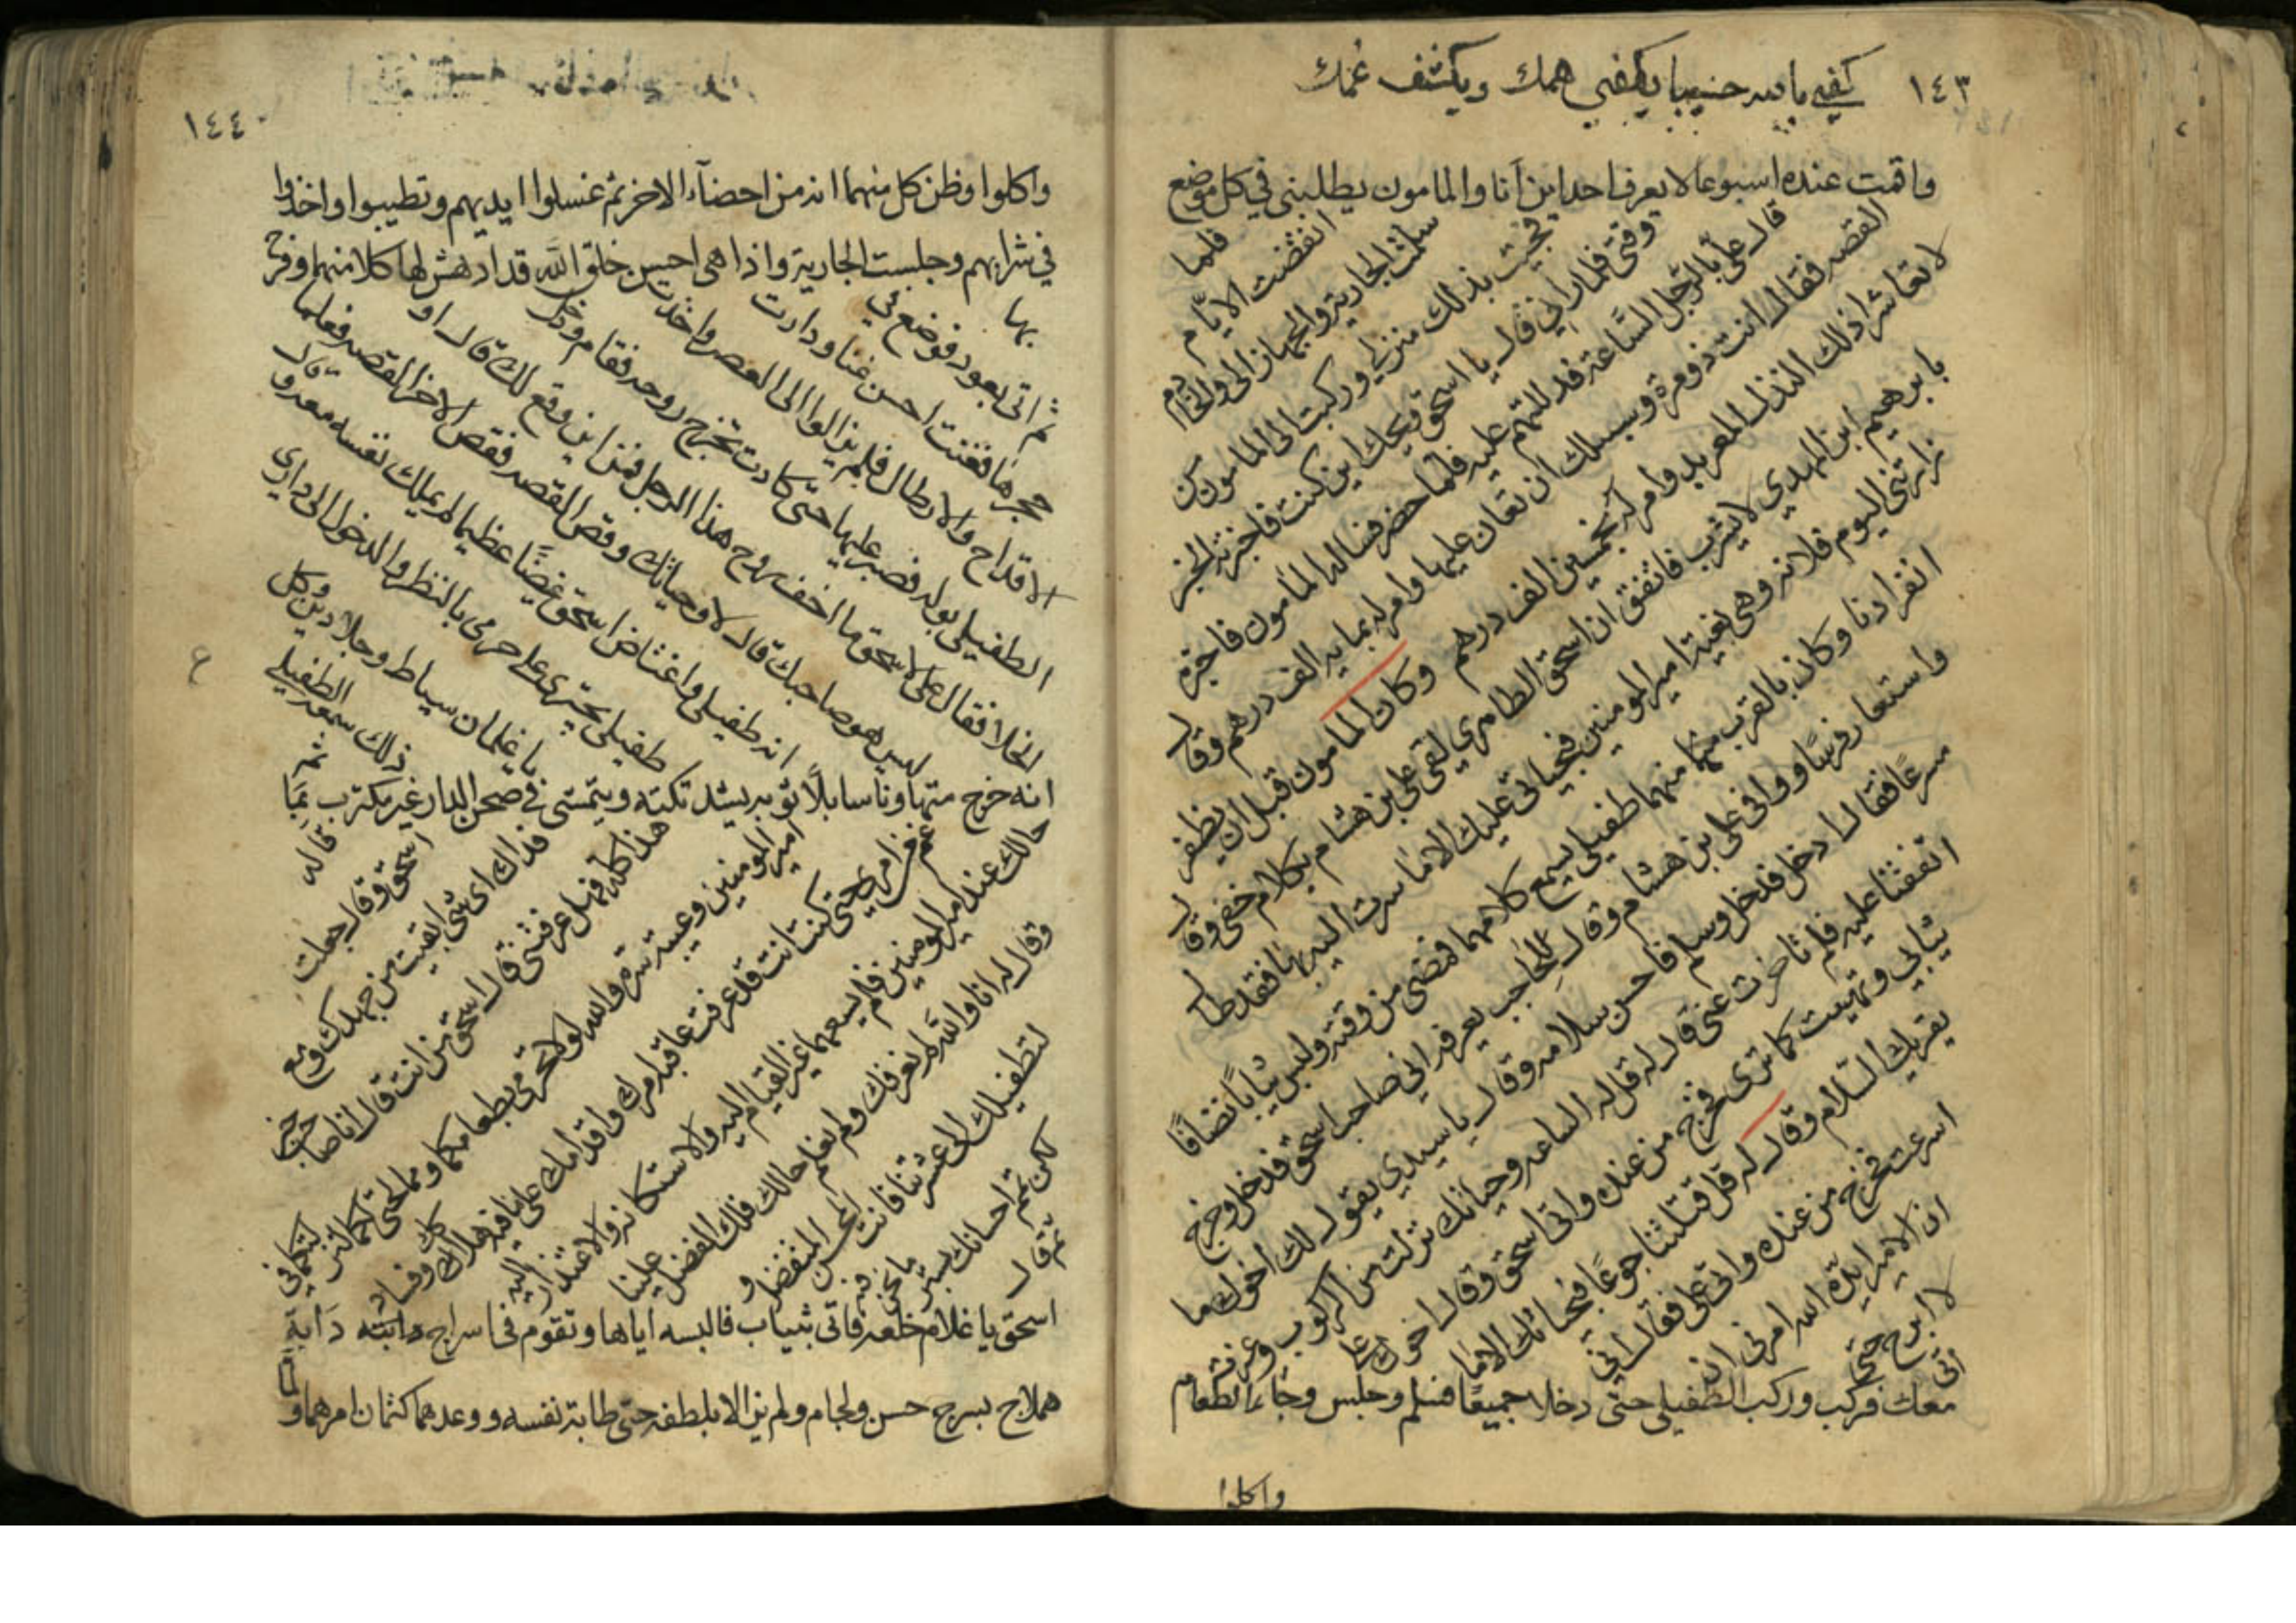 ١٤٣
كفى بالله حسيبا يكفي همك ويكشف غمك
واقمت عنده اسبوعا لا يعرف احد اين انا والمامون يطلبني في كل موضع
فلما
انقضت الايام
سلمت الجارية والجهاز الى والخادم
فجيت بذلك منزلي وركبت الى المامون من
وقتي فلما راني قال يا اسحق ويحك اين كنت فاخبرته الخبر
قال علي بالرجل الساعة فدللتهم عليه فلما حضر فساله المامون فاخبره
القصه فقال انت ذو مروة وسبيلك ان تعان عليها وامر له بماية الف درهم وقال
لا تعاشر ذلك النذل المعربد وامر له بخمسين الف درهم وكان المامون قبل ان يظفر
بابرهيم ابن المهدي لا يشرب فاتفق ان اسحق الظاهري لقي علي بن هشام بكلام خفي وقال
زارتني اليوم فلانه وهي بغية امير المومنين فبحياتي عليك الا ما سرت الينا فقد طال
انفرادنا وكان بالقرب منهما طفيلي يسمع كلامهما فمضى من وقته ولبس ثيابا نضافا
واستعار فرسا ووافى علي ابن هشام وقال للحاجب يعرفه اني صاحب اسحق فدخل وخرج
مسرعا فقال ادخل فدخل وسلم فاحسن سلامه وقال يا سيدي يقول لك اخوك ما
اتفقنا عليه فلم تاخرت عني قال له قل له الساعه وحياتك نزلت من الركوب وغيرت
ثيابي وتهيت كما ترى فخرج من عنده واتى اسحق وقال اخوك علي
يقريك السلام وقال له قل قتلتنا جوعا فبحياتك الا ما
اسرعت فخرج من عنده واتى علي فقال اني
ان الامير ايده الله امرني ان
لا ابرح حتى
اتى
معك فركب وركب الطفيلي حتى دخلا جميعا فسلم وجلس وجاء الطعام
واكلوا
١٤٤
واكلوا وظن كل منهما انه من احضاء الاخر ثم غسلوا ايديهم وتطيبوا واخذوا
في شرابهم وجلست الجارية واذا هي احسن خلق الله قد ادهش لها كلا منهما وفرح
بها
ثم اتى بعود فوضع في
حجرها فغنت احسن غنا ودارت
الاقداح والارطال فلم يزالوا الى العصر واخذت
الطفيلي بوله فصبر عليها حتى كادت تخرج روحه فقام ودخل
الخلا فقال علي لاسحق ما اخف روح هذا الرجل فمن اين وقع لك قال او
ليس هو صاحبك قال لا وحياتك وقص القصه فقص الاخر القصه فعلما
انه طفيلي واغتاض اسحق غيضا عظيما لم يملك نفسه معه وقال
طفيلي يجتري على حرمي بالنظر والدخول الى داري
يا غلمان سياط وجلادين وكل
ذلك سمعه الطفيلي
ثم
انه خرج متهاونا سابلا ثوبه يشد تكته ويتمشى في صحن الدار غير مكترب بما
قاله
اسحق وقال جعلت
فداك اي شي ابقيت من جهدك ومع
هذا كله فهل عرفتني قال اسحق من انت قال انا صاحب خبر
امير المومنين وعيبة سره والله لولا تحرمي بطعامكما وممالحتي لكما لتركتكما في
عمى من امري حتى كنت انت قد عرفت عاقبة امرك واقدامك على ما فيه هلاكك وفساد
حالك عند امير المومنين فلم يسعهما غير القيام اليه والاستكانه والاعتذار اليه
وقال له انا والله لم نعرفك ولم نعلم حالك فلك الفضل علينا
لتطفيلك الى عشرتنا فانت المحسن المتفضل و
لكن تمم احسانك بستر ما نحن فيه
ثم قال
اسحق يا غلام خلعه فاتى بثياب فالبسه اياها وتقوم في اسراج دابته دابة
هملاج بسرج حسن ولجام ولم يزالا بلطفه حتى طابة نفسه ووعدهما كتمان امرهما و